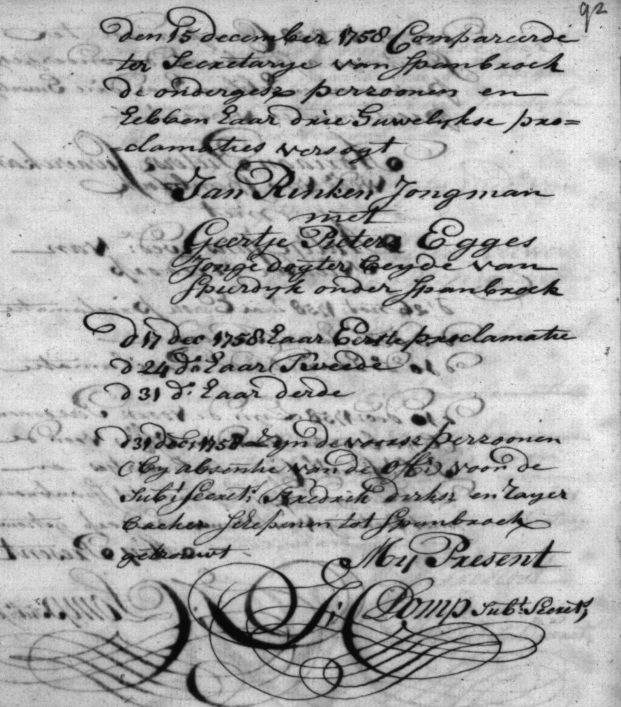 92
den 15 december 1758 Compareerde
ter Secretarye van Spanbroek
de onderges: perzoonen en
hebben haar drie huwelykse pro=
=clamaties versogt
Jan Rinken Jongman
met
Geertje Pieters Egges
Jonge dogter beyde van
Spierdyk onder Spanbroek
d 17 dec 1758 haar Eerste proclamatie
d 24 do haar Tweede
d 31 do haar derde
d 31 dec: 1758 zyn de voorsz perzoonen
(by absentie van de Offr:) voor de
Subt: Secret: Fredrik dirksz en
Backer Schepenen tot Spanbroek
getrouwt
My Present
Pomp Subt: Secrets